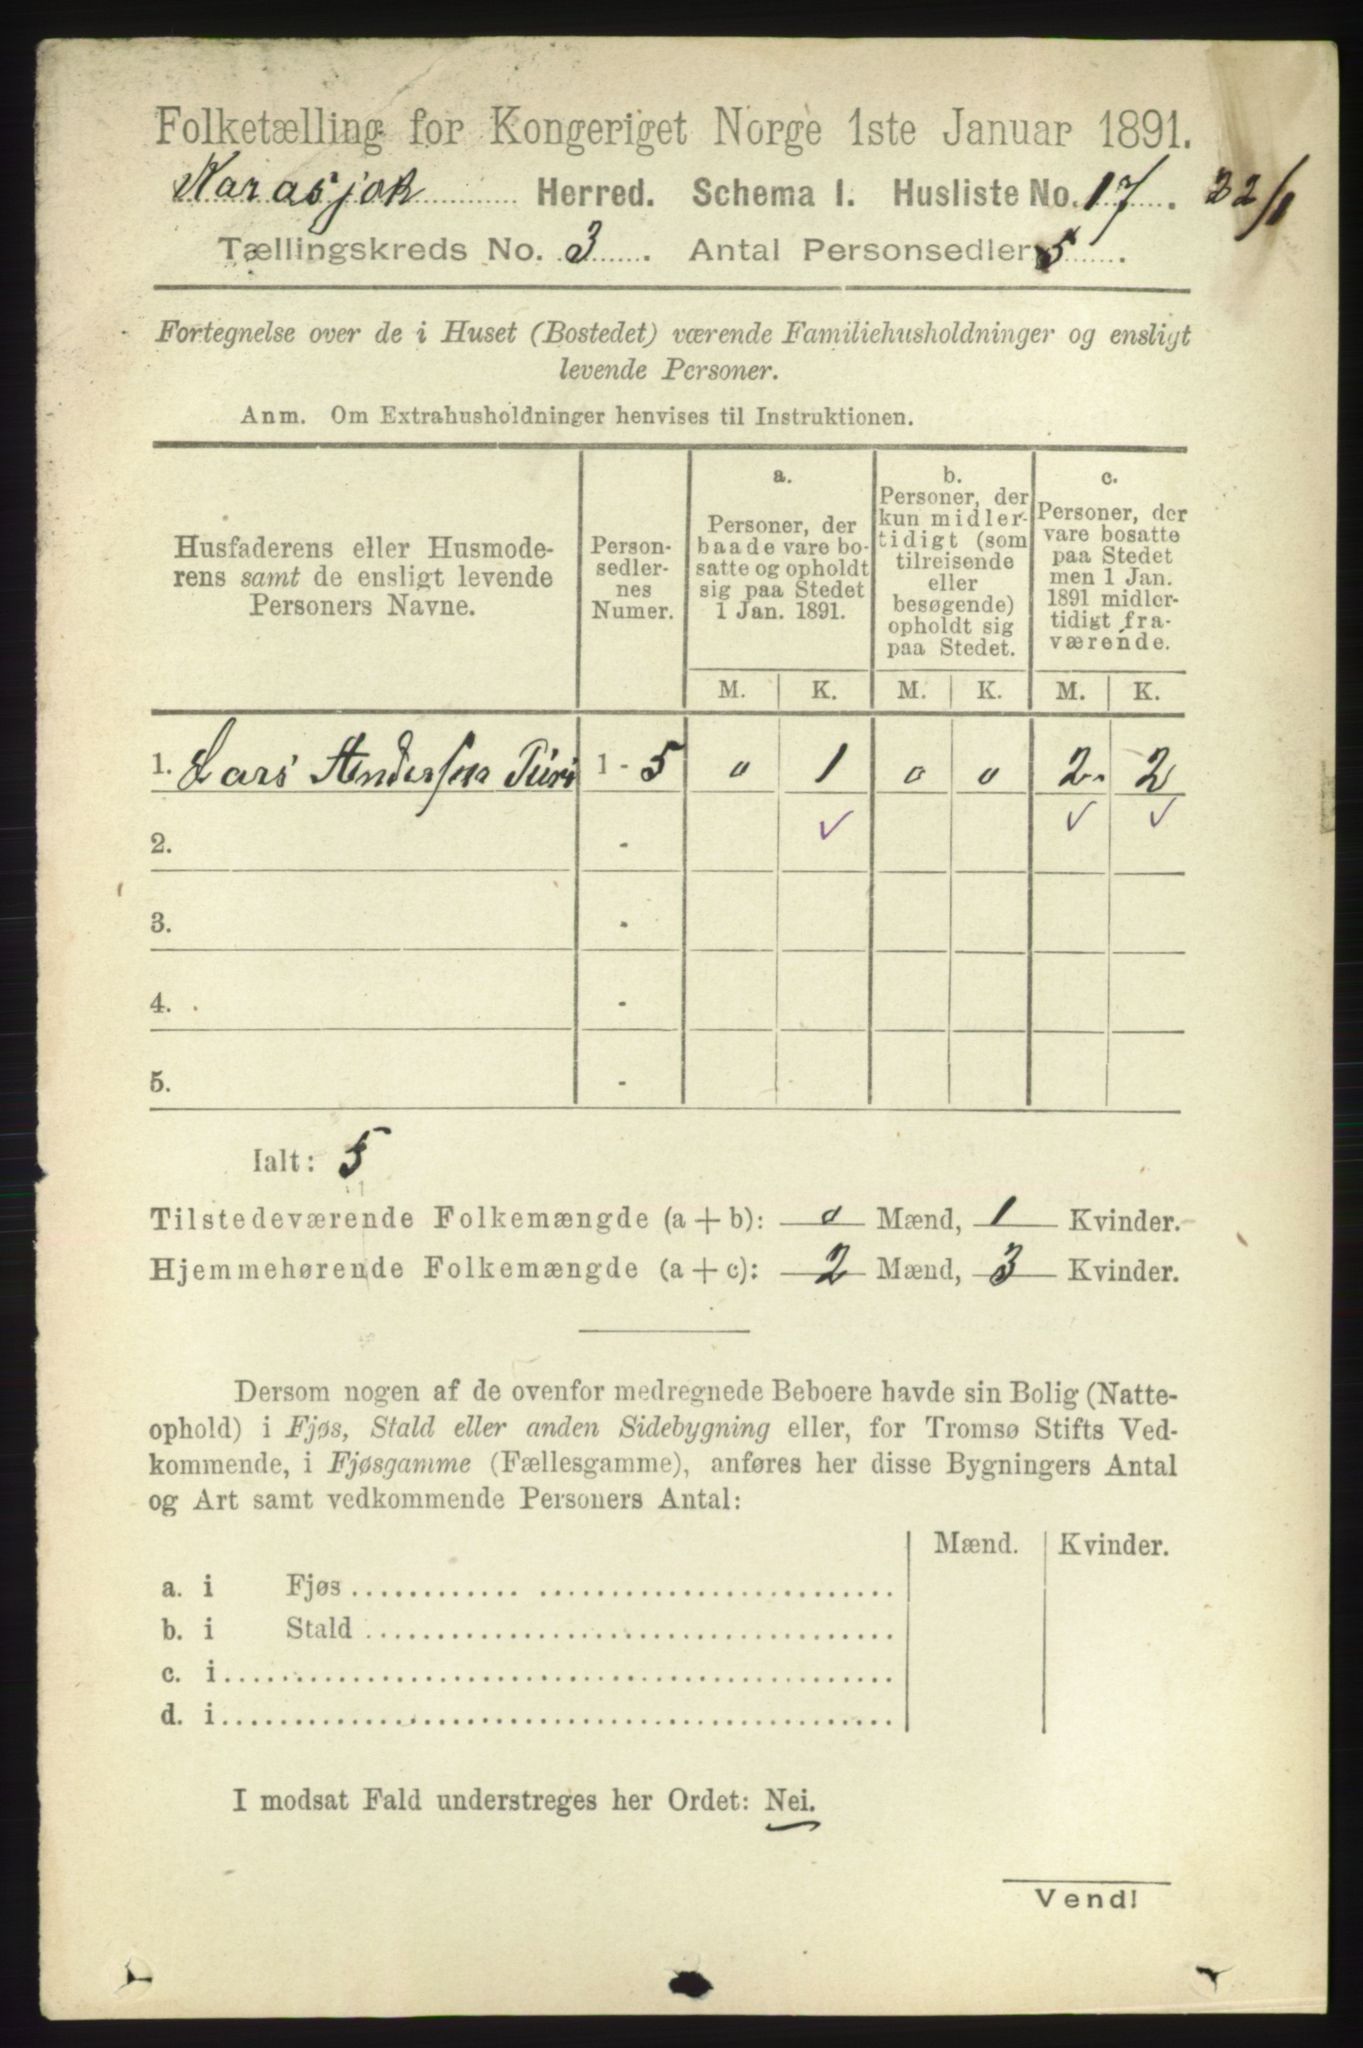 Folketælling for Kongeriget Norge 1ste Januar 1891.
Karasjok Herred. Schema I. Husliste No. 17. 32/1
Tællingskreds No. 3. Antal Personsedler 5.
Fortegnelse over de i Huset (Bostedet) værende Familiehusholdninger og ensligt
levende Personer.
Anm. Om Extrahusholdninger henvises til Instruktionen.
Husfaderens eller Husmode-
rens samt de ensligt levende
Personers Navne.
Person-
sedler-
nes
Numer.
a.
Personer, der
baade vare bo-
satte og opholdt
sig paa Stedet
1 Jan. 1891.
b.
Personer, der
kun midler-
tidigt (som
tilreisende
eller
besøgende)
opholdt sig
paa Stedet.
c.
Personer, der
vare bosatte
paa Stedet
men 1 Jan.
1891 midler-
tidigt fra-
værende.
M. K. M. K. M. K.
1. Lars Andersen 1 - 5 0 1 0 0 2 2
2. -
3. -
4. -
5. -
Ialt: 5
Tilstedeværende Folkemængde (a + b): 0 Mænd, 1 Kvinder.
Hjemmehørende Folkemængde (a + c): 2 Mænd, 3 Kvinder.
Dersom nogen af de ovenfor medregnede Beboere havde sin Bolig (Natte-
ophold) i Fjøs, Stald eller anden Sidebygning eller, for Tromsø Stifts Ved-
kommende, i Fjøsgamme (Fællesgamme), anføres her disse Bygningers Antal
og Art samt vedkommende Personers Antal:
Mænd. Kvinder.
a. i Fjøs
b. i Stald
c. i
d. i
I modsat Fald understreges her Ordet: Nei.
Vend!